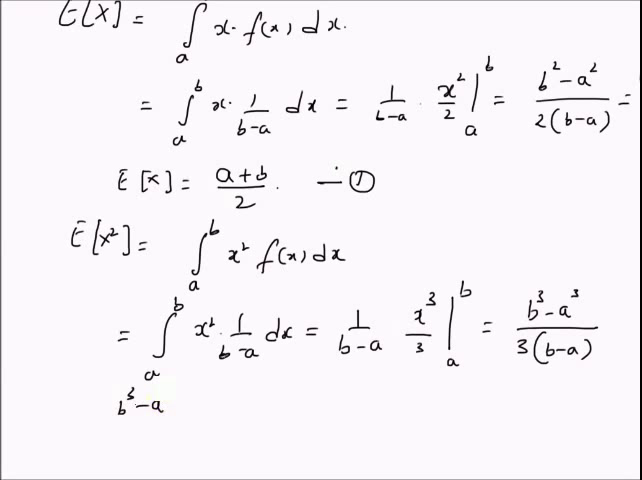 E[X] = ∫ₐ x· f(x) dx.
= ∫ₐᵇ x· 1/(b-a) dx = 1/(b-a) · x²/2 |ₐᵇ = (b²-a²)/(2(b-a)) =
E[x] = (a+b)/2. — ①
E[x²] = ∫ₐᵇ x² f(x) dx
= ∫ₐᵇ x² · 1/(b-a) dx = 1/(b-a) x³/3 |ₐᵇ = (b³-a³)/(3(b-a))
b³-a